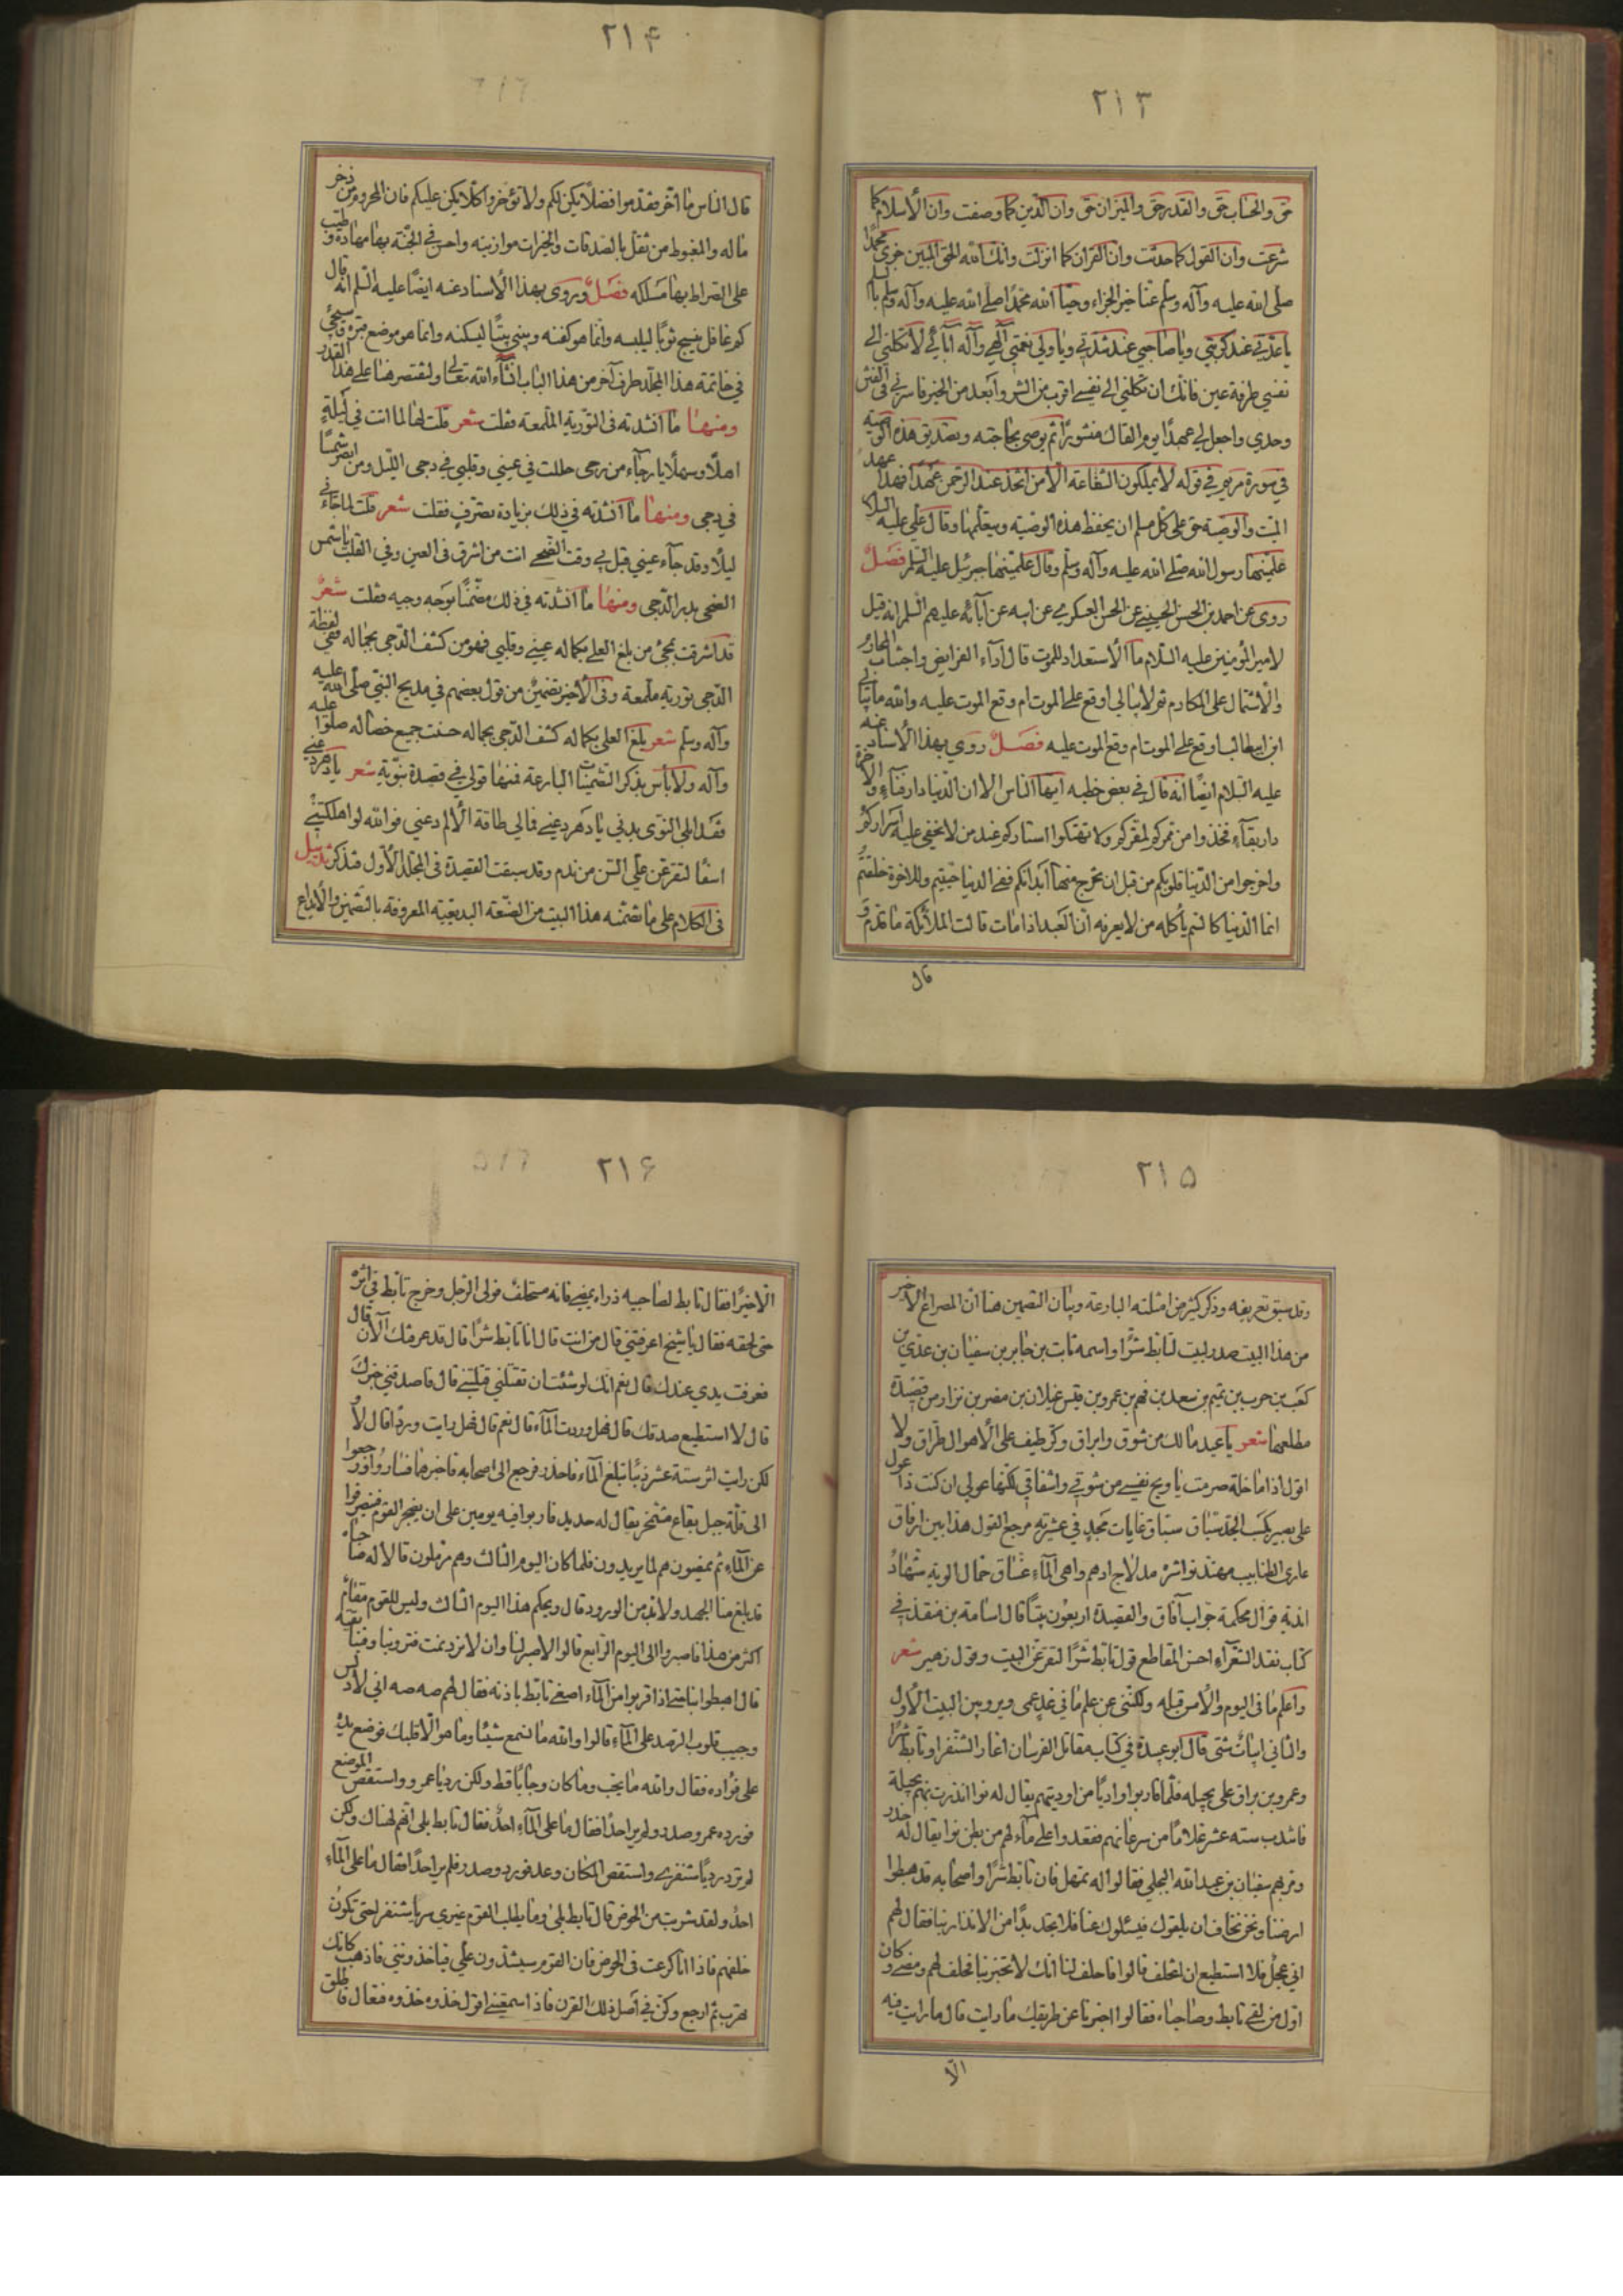 ۲۱۳
حق والحساب حق والقدر حق والميزان حق وان الدين كما وصفت وان الأسلام كما
شرعت وان القول كما حدثت وان القران كما انزلت وانك انت الله الحق المبين جزى الله محمدا
صلى الله عليه وآله وسلم عنا خير الجزاء وحيا الله محمدا صلى الله عليه وآله وسلم بالسلم
يا عدتي عند كربتي ويا صاحبي عند شدتي ويا ولي نعمتي الهي وآله آبائي لا تكلني الى
نفسي طرفة عين فانك ان تكلني الى نفسي اقرب من الشر وابعد من الخير فآنس في القبر
وحدي واجعل لي عهدا يوم القاك منشورا ثم يوصي بحاجته وتصديق هذه الوصية
في سورة مريم في قوله لا يملكون الشفاعة الا من اتخذ عند الرحمن عهدا فهذا عهد
الميت والوصية حق على كل مسلم ان يحفظ هذه الوصية ويعلمها وقال علي عليه السلام
علمنيها رسول الله صلى الله عليه وآله وسلم وقال علمنيها جبرئيل عليه السلم فصل
روى عن احمد بن الحسن الحسيني عن الحسن العسكري عن ابيه عن آبائه عليهم السلم انه قيل
لامير المؤمنين عليه السلام ما الأستعداد للموت قال أداء الفرايض واجتناب المحارم
والأشتمال على المكارم ثم لا يبالي اوقع على الموت ام وقع الموت عليه والله ما يبالي
ابن ابيطالب اوقع على الموت ام وقع الموت عليه فصل روي بهذا الأسناد عنه
عليه السلام ايضا انه قال في بعض خطبه ايها الناس الا ان الدنيا دار فناء والآخرة
دار بقاء فخذوا من ممركم لمقركم ولا تهتكوا استاركم عند من لا يخفى عليه اسراركم
واخرجوا من الدنيا قلوبكم من قبل ان تخرج منها أبدانكم ففي الدنيا حييتم وللاخرة خلقتم
انما الدنيا كالسم يأكله من لا يعرفه ان العبد اذا مات قالت الملائكة ما قدم و
قال
۲۱۴
قال الناس ما أخر فقدموا فضلا يكن لكم ولا تؤخروا كلا يكن عليكم فان المحروم من ذخر
ماله والمغبوط من ثقل بالصدقات والخيرات موازينه واحسن في الجنة بها مهاده وطيب
على الصراط بها مسلكه فصل وروى بهذا الأسناد عنه ايضا عليه السلم انه قال
كم غافل ينسج ثوبا ليلبسه وانما هو كفنه ويبني بيتا ليسكنه وانما هو موضع قبره وسيجئ
في خاتمة هذا المجلد طرف آخر من هذا الباب انشاء الله تعالى ولنقتصر هنا على هذا القدر
ومنها ما انشدته في التورية الملمعة فقلت شعر قلت لها لما اتت في ليلة
اهلا وسهلا يا رجآء من رجى حللت في عيني وقلبي في دجى الليل ومن ابصر شمسا
في دجى ومنها ما أنشدته في ذلك بزيادة تصرف فقلت شعر قلت لما جاءني
ليلا وقد جآء عيني قبل بي وقت الضحى انت من اشرق في العين وفي القلب يا شمس
الضحى بدر الدجى ومنها ما أنشدته في ذلك مضمنا بوجه وجيه فقلت شعر
قد اشرقت بمجئ من بلغ العلى بكماله عيني وقلبي فهو من كشف الدجى بجماله ففي لفظة
الدجى تورية ملمعة وفي الأخير تضمين من قول بعضهم في مديح النبي صلى الله عليه
وآله وسلم شعر بلغ العلى بكماله كشف الدجى بجماله حسنت جميع خصاله صلوا عليه
وآله ولا بأس بذكر التضمينات البارعة فمنها قولي في قصيدة نبوية شعر يا دهر دعني
فقد ابلى النوى بدني يا دهر دعني فمالي طاقة الألم دعني فوالله لو اهلكتني
اسفا لتقرعن علي السن من ندم وقد سبقت القصيدة في المجلد الأول فتذكر تذييل
في الكلام على ما تضمنه هذا البيت من الصنعة البديعية المعروفة بالتضمين والأيداع
۲۱۵
وقد سبق تعريفه وذكر كثير من امثلته البارعة وبيان التضمين هنا ان المصراع الأخير
من هذا البيت صدر بيت لتابط شرا واسمه ثابت بن جابر بن سفيان بن عدي بن
كعب بن حرب بن تميم بن سعد بن فهم بن عمرو بن قيس غيلان بن مضر بن نزار من قصيدة
مطلعها شعر يا عيد مالك من شوق وايراق وكر طيف على الأهوال طراق ولا
اقول اذا ما خلة صرمت يا ويح نفسي من شوقي واشفاقي لكنما عولي ان كنت ذا عول
على بصير بكسب الحمد سباق سباق غايات مجد في عشيرته مرجع القول هذا بين ارفاق
عاري الظنابيب ممتد نواشره مدلاج ادهم واهي الماء غساق حمال الوية شهاد
اندية قوال محكمة جواب آفاق والقصيدة اربعون بيتا قال اسامة بن منقذ في
كتاب نقد الشعرآء احسن المقاطع قول تابط شرا لتقرعن البيت وقول زهير شعر
وأعلم ما في اليوم والأمس قبله ولكنني عن علم ما في غد عمي ويروى بين البيت الأول
والثاني ابيات شتى قال ابو عبيدة في كتاب مقاتل الفرسان اغار الشنفرا وتابط شرا
وعمرو بن براق على بجيلة فلما قاربوا واديا من اوديتهم يقال له نوا انذرت بهم بجيلة
فانتدب ستة عشر غلاما من سرعانهم فقعدوا على ماء لهم من بطن نوا يقال له حدر
ومر بهم سفيان بن عبد الله البجلي فقالوا له تمهل فان تابط شرا واصحابه قد هبطوا
ارضنا ونحن نخاف ان يلقوك فيسئلوك عنا فلا تجد بدا من الانذار بنا فقال لهم
اني عجل فلا استطيع ان اتخلف قالوا فاحلف لنا انك لا تخبر بنا فحلف لهم ومضى وكان
اول من لقي تابط وصاحباه فقالوا اخبرنا عن طريقك ما رايت قال ما رايت فيه
الا
۲۱۶
الا خيرا فقال تابط لصاحبيه ذراه يمضي فانه مستحلف فولى الرجل وخرج تابط في اثره
حتى لحقه فقال يا شيخ اعرفتني قال من انت قال انا تابط شرا قال قد عرفتك الآن قال
فعرفت يدي عندك قال نعم انك لو شئت ان تقتلني قتلتني قال فاصدقني خبرك
قال لا استطيع صدقك قال فهل وردت الماء قال نعم قال فهل رايت وردا قال لا و
لكن رايت اثر ستة عشر ذئبا تبلغ الماء فاحذر فرجع الى اصحابه فاخبرهما فساروا ورجعوا
الى قلة جبل بقاع مشمخر يقال له حديد فارتبوا فيه يومين على ان يضجر القوم فينصرفوا
عن الماء ثم يمضون هم لما يريدون فلما كان اليوم الثالث وهم مرملون قالا له صاحباه
قد بلغ منا الجهد ولا بد من الورود قال ويحكم هذا اليوم الثالث وليس للقوم مقام
اكثر من هذا فاصبروا الى اليوم الرابع قالوا لا صبر لنا وان لا نرد نمت فترونا وفينا بقية
قال اهبطوا بنا حتى اذا قربوا من الماء اصغى تابط باذنه فقال لهم صه صه اني لأحس
وجيب قلوب الرصد على الماء قالوا والله ما نسمع شيئا وما هو الا قلبك فوضع يده
على فؤاده فقال والله ما يجب وما كان وجابا قط ولكن رد يا عمرو واستقص الموضع
فورده عمرو وصدر ولم ير احدا فقال ما على الماء احد فقال تابط بلى انهم لهناك ولكن
لم ترد رد يا شنفرى واستقص المكان وعد فورد وصدر فلم ير احدا فقال ما على الماء
احد ولقد شربت من الحوض قال تابط بلى وما يطلب القوم غيري سر يا شنفر حتى تكون
خلفهم فاذا انا كرعت في الحوض فان القوم سيشدون علي فياخذونني فاذهب كانك
تهرب ثم ارجع وكن في أصل ذلك القرن فاذا سمعتني اقول خذوه خذوه فتعال فاطلق